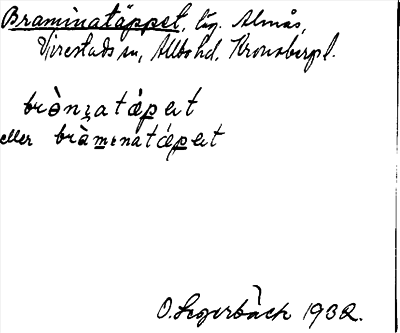 Braminatäppet, lg. Almås,
Virestads sn, Allbo hd, Kronobergs l.
brònzatǽpət
eller bràmɩnatǽpət
O. Segerbäck 1932.